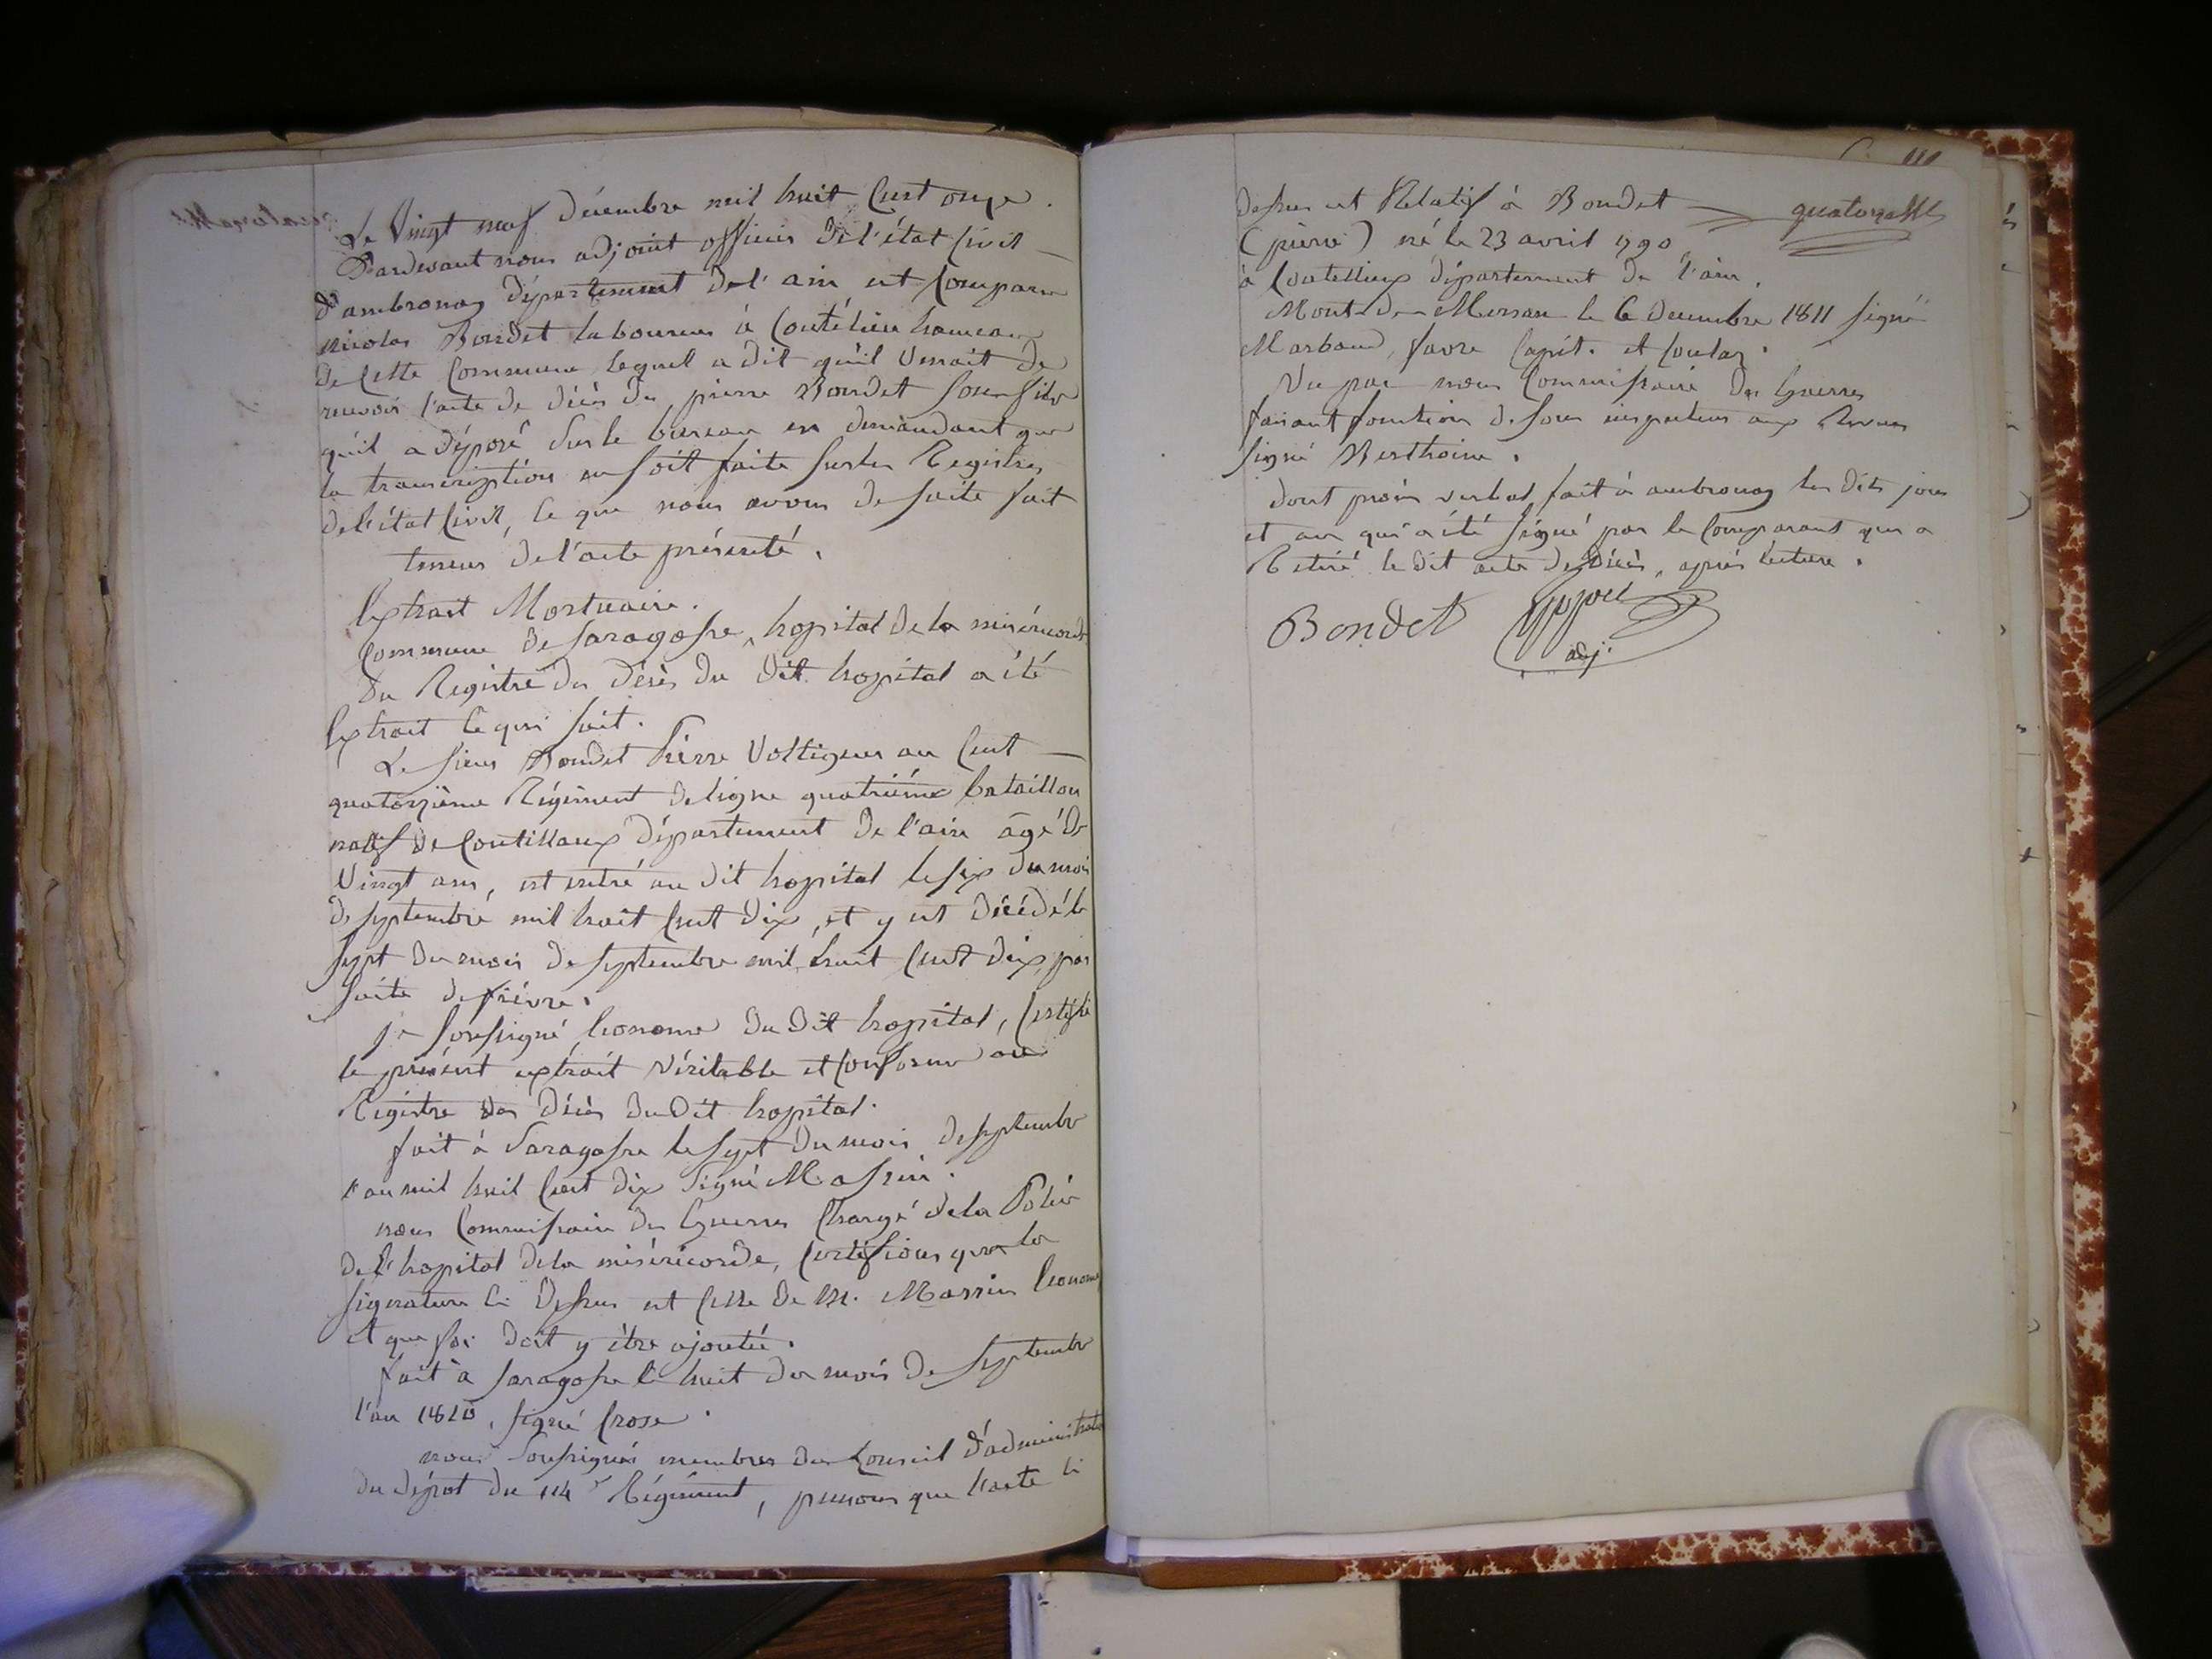 Le Vingt neuf décembre mil huit Cent onze.
Pardevant nous adjoint officier de l'état Civil
d'ambronay département de l'ain est Comparu
nicolas Bondet laboureur à Coutelieu hameau
de Cette Commune lequel a dit qu'il Venait de
recevoir l'acte de décès de pierre Bondet Son fils
qu'il a déposé Sur le bureau en demandant que
la transcription en Soit faite Sur les Registres
de l'état Civil, Ce que nous avons de Suite fait
teneur de l'acte présenté.
Extrait Mortuaire.
Commune de Saragosse, hopital de la miséricorde
Du Registre des Décès du Dit hopital a été
Extrait Ce qui Suit.
Le Sieur Bondet Pierre Voltigeur au Cent
quatorzième Régiment de ligne quatrième bataillon
natif de Coutillaux département de l'ain âgé de
Vingt ans, est entré au dit hopital le Six du mois
de Septembre mil huit Cent dix, et y est décédé le
Sept du mois de Septembre mil huit Cent dix, par
Suite de fièvre.
je Soussigné, Econome du Dit hopital, Certifie
le présent extrait Véritable et Conforme au
Registre des Décès du Dit hopital.
fait à Saragosse le Sept du mois de Septembre
l'an mil huit Cent dix Signé Massin.
nous Commissaire des Guerres Chargé de la Police
de l'hopital de la miséricorde, Certifions que la
Signature Ci Dessus est Celle de M. Massin Econome
et que foi doit y être ajoutée.
fait à Saragosse le huit du mois de Septembre
l'an 1810, Signé Crose.
nous Soussignés membres du Conseil d'administration
du dépot du 114e Régiment, prenons que l'acte Ci
dessus est Relatif à Bondet
(pierre) né le 23 avril 1790
à Coutellieux département de l'ain.
Mont-de-Marsan le 6 décembre 1811 Signé
Marbaud, favre Capit. et Coular.
Vu par nous Commissaire des Guerres
faisant fonction de Sous inspecteur aux Revues
Signé Berthoine.
dont procès verbal fait à ambronay les dits jour
et an qui a été Signé par le Comparant qui a
Retiré le dit acte de Décès, après lecture.
Bondet
adj.